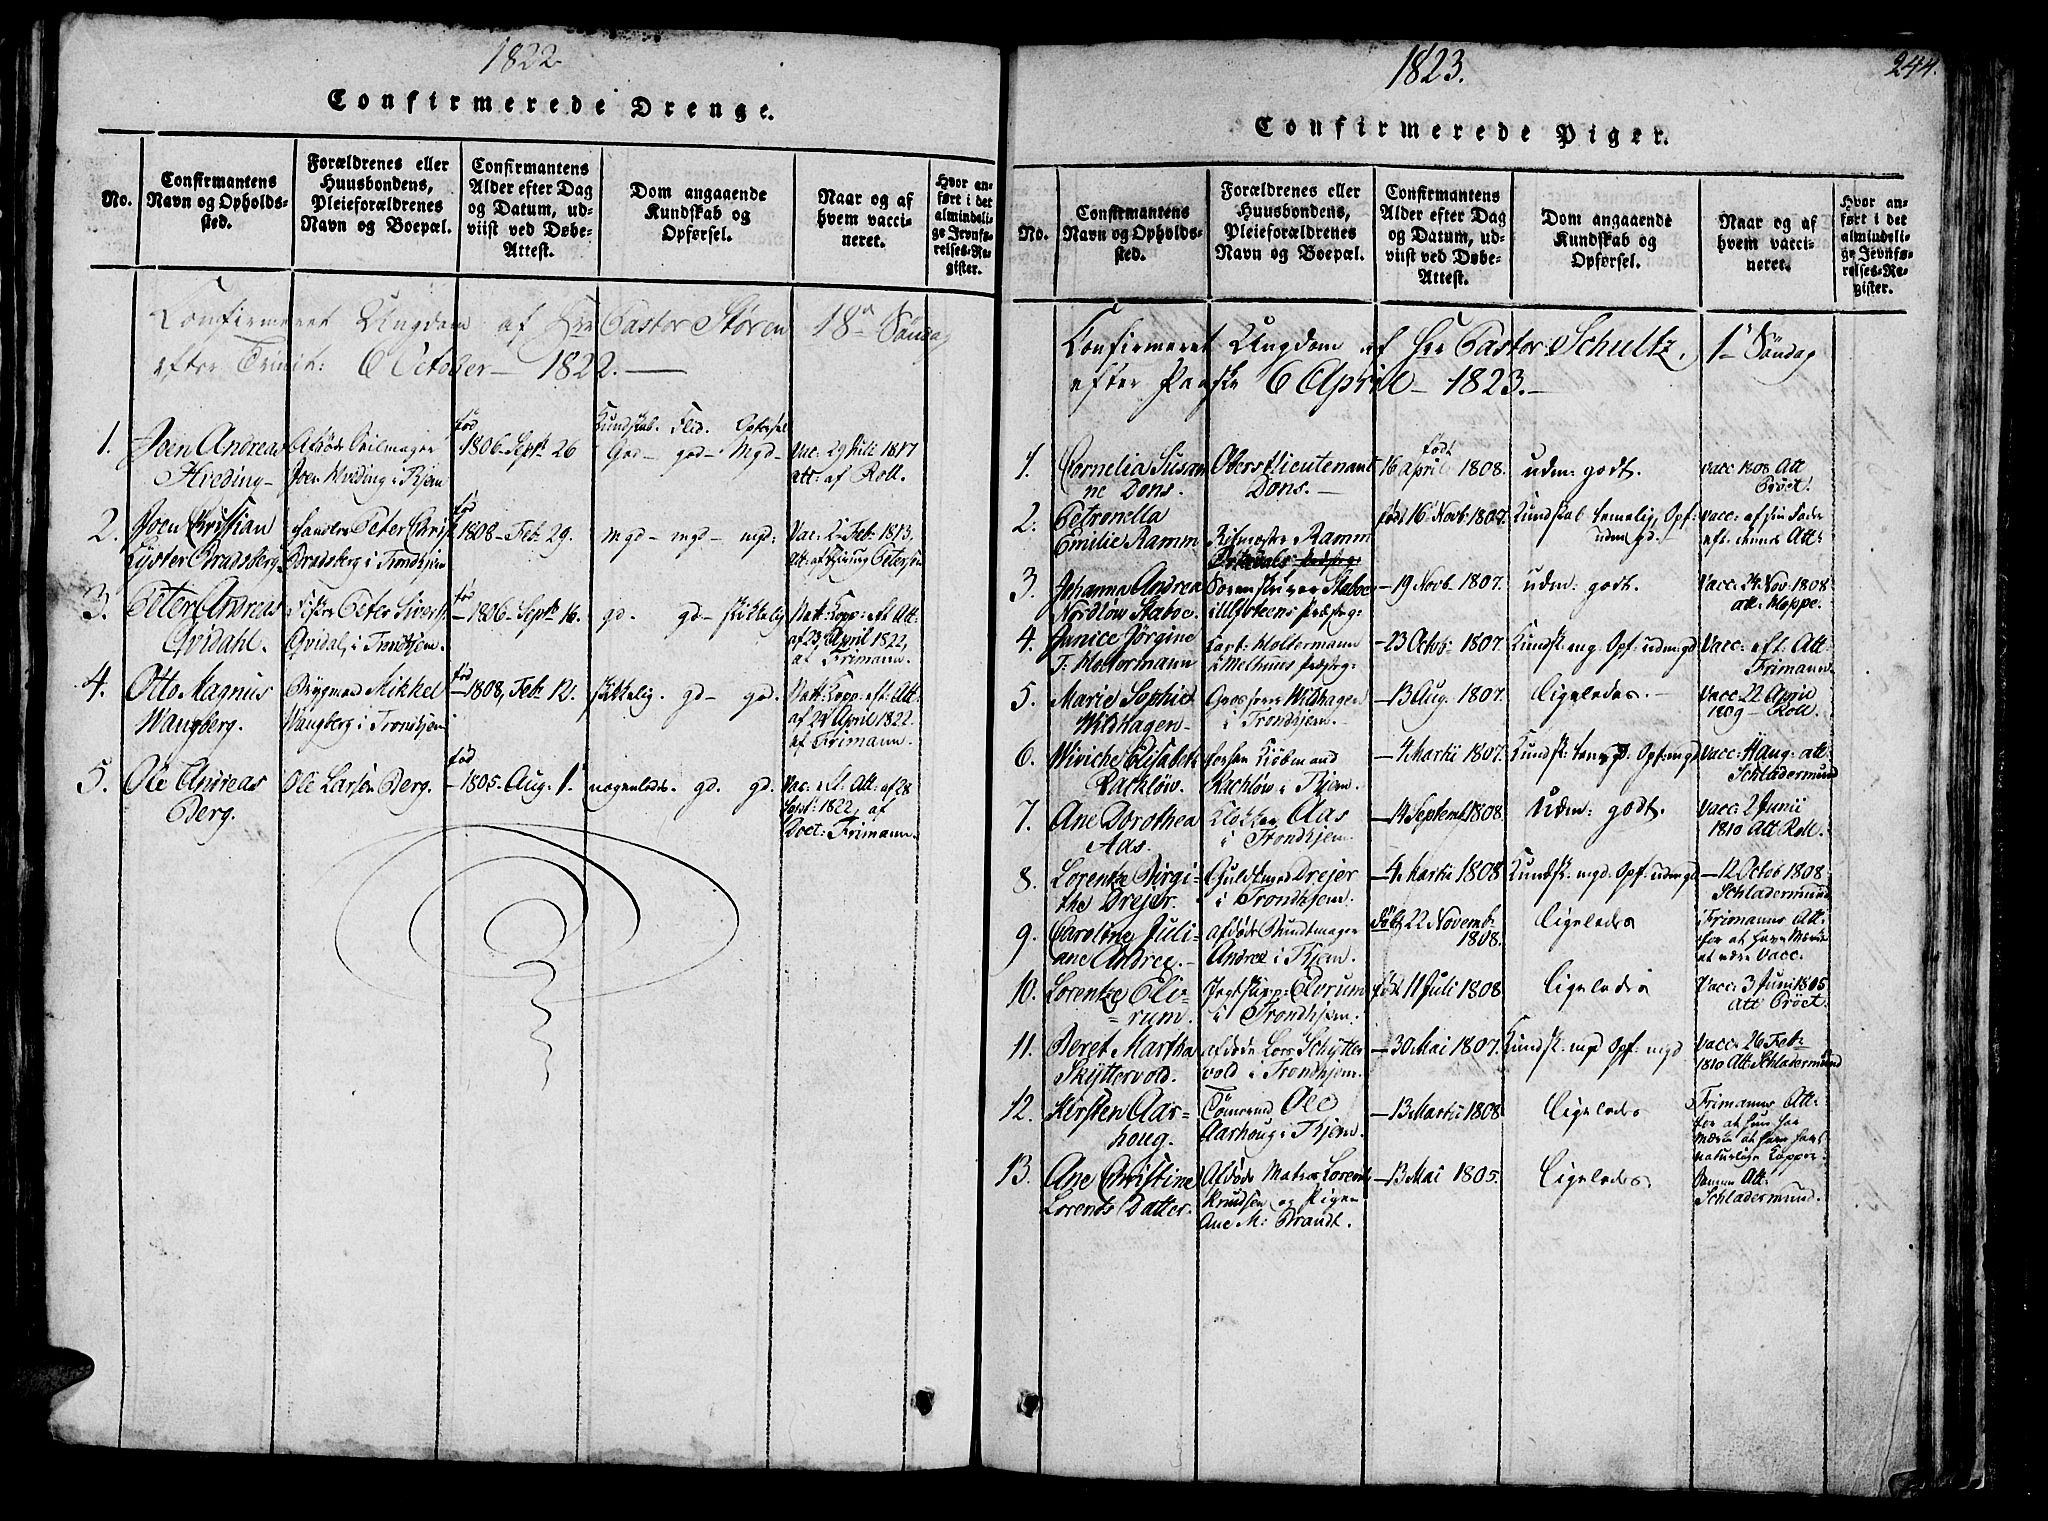 1822.
Confirmerede Drenge.
No.
Confirmantens
Navn og Opholds-
sted.
Forældrenes eller
Huusbondens,
Pleieforældrenes
Navn og Boepæl.
Confirmantens
Alder efter Dag
og Datum, ud-
viist ved Døbe-
Attest.
Dom angaaende
Kundskab og
Opførsel.
Naar og af
hvem vacci-
neret.
Hvor an-
ført i det
almindeli-
ge Jevnfø-
relses-Re-
gister.
Confirmeret Ungdom af Hrr Pastor Støren 18de Søndag
efter Trinit: 6 October - 1822.
Kundskab. Flid. Opførsel
1. Joen Andreas
Hveding -
Joen Hveding i Tkjem
fød
1806 - Septb 26
God - god - Mgd -
Vac. 29 Juli 1817
att: af Roll.
2. Joen Christian
Lyster Bradsberg
Peter Chris
Bradsberg i Trondhjem
fød
1808 - Feb. 29.
mgd - mgd - mgd:
Vac: 2 Feb: 1813,
Petersen
3. Peter Andreas
Qvidahl.
Peter Sivert
Qvidal, i Trondhjem.
fød
- 1806 - Septb 16.
gd. gd - skikkelig
Natt: Kopp: eft. Att:
af 23 April 1822,
af Frimann.
4. Otto Magnus
Wangberg.
Mikkel
Wangberg i Trondhjem
fød
- 1808, Feb: 12.
skikkelig. gd - gd.
Natt: Kopp: eft. Att.
af 24 April 1822.
af Frimann.
5. Ole Andreas
Berg.
Ole Larsen Berg.
fød
- 1805. Aug. 1.
nogenledes. gd. gd.
Vac: eft. Att: af 28
Sept: 1822, af
Doct: Frimann.
1823.
244.
Confirmerede Piger.
No.
Confirmantens
Navn og Opholds-
sted.
Forældrenes eller
Huusbondens,
Pleieforældrenes
Navn og Boepæl.
Confirmantens
Alder efter Dag
og Datum, ud-
viist ved Døbe-
Attest.
Dom angaaende
Kundskab og
Opførsel.
Naar og af
hvem vacci-
neret.
Hvor an-
ført i det
almindeli-
ge Jevnfø-
relses-Re-
gister.
Confirmeret Ungdom af Hrr Pastor Schultz, 1te Søndag
efter Paaske 6 April - 1823. -
1. Cornelia Susan
ne Dons.
Oberstlieutenant
Dons. -
født
16 April 1808.
udm: godt.
vacc 1808 Att
Prøet.
2. Petronella
Emilie Ramm
Ritmester Ramm
født 16 Novb: 1807.
Kundskab temelig, Opf:
udm gd.
Vacc: af sin Fader
eft. Att:
3. Johanna Andrea
Nordlow Staboe.
Staboe
- 19 Novb. 1807.
udm: godt.
Vacc: 24 Nov: 1808
att: Hoppe.
4. Janice Jørgine
F. Holtermann
Capt: Holtermann
i Melhuus Præsteg:
- 23 Octob: 1807.
Kundsk: mg. Opf: udm: gd
Vacc: eft: Att
Frimann
5. Marie Sophie
Wildhagen
Wildhagen
i Trondhjem. -
- 13 Aug. 1807.
Ligeledes. -
Vacc: 22 April
1809 - Roll.
6. Wiviche Elisabeth
Rachløw.
Kiøbmand
Rachløw i Tkjem.
- 4 Martii 1807.
Vacc: Haug: att
Schladermund
7. Ane Dorothea
Aas.
Klokker Aas
i Trondhjem.
- 14 Septemb 1808.
Udm: godt.
Vacc: 2 Junii
1810 Att Roll.
8. Lorentze Birgi-
the Drejer.
Guldsmed Drejer
i Trondhjem.
- 4 Martii 1808
Kundsk. mgd. Opf: udm: gd
- 12 Octob 1808
Schladermund
9. Caroline Juli-
ane Andree. -
afdøde Buntmager
Andree i Tkjem.
Døbt 22 Novemb:
1808.
Ligeledes
Frimanns Att:
Vacc:
10. Lorentze Elv-
rum.
Elvrum
i Trondhjem.
født 11 Juli 1808
Ligeledes
Vacc: 3 Juni 1805
Att Prøet.
11. Beret Martha
Skyttervold.
afdøde Lars Schytter
vold i Trondhjem.
- 30 Mai 1807.
Kundsk. mgd Opf: mgd
Vacc: 26 Feb:
1810 Att Schladermund
12. Kirsten Aar-
houg.
Tømmermd Ole
Aarhoug i Tkjem.
- 13 Martii 1808
Ligeledes
Frimanns Att:
for at hun har
havt
naturlige Kopper.
13. Ane Christine
Lorents Datter.
Afdøde Matros Lorents
Knudsen og Pigen
Ane M: Brandt.
- 13 Mai 1805.
Ligeledes.
Samme Att:
Schladermund.